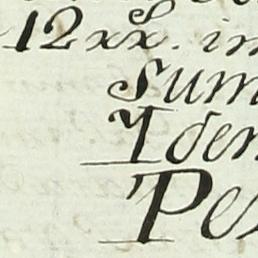 12xx. in
Sum
Iden
Pe